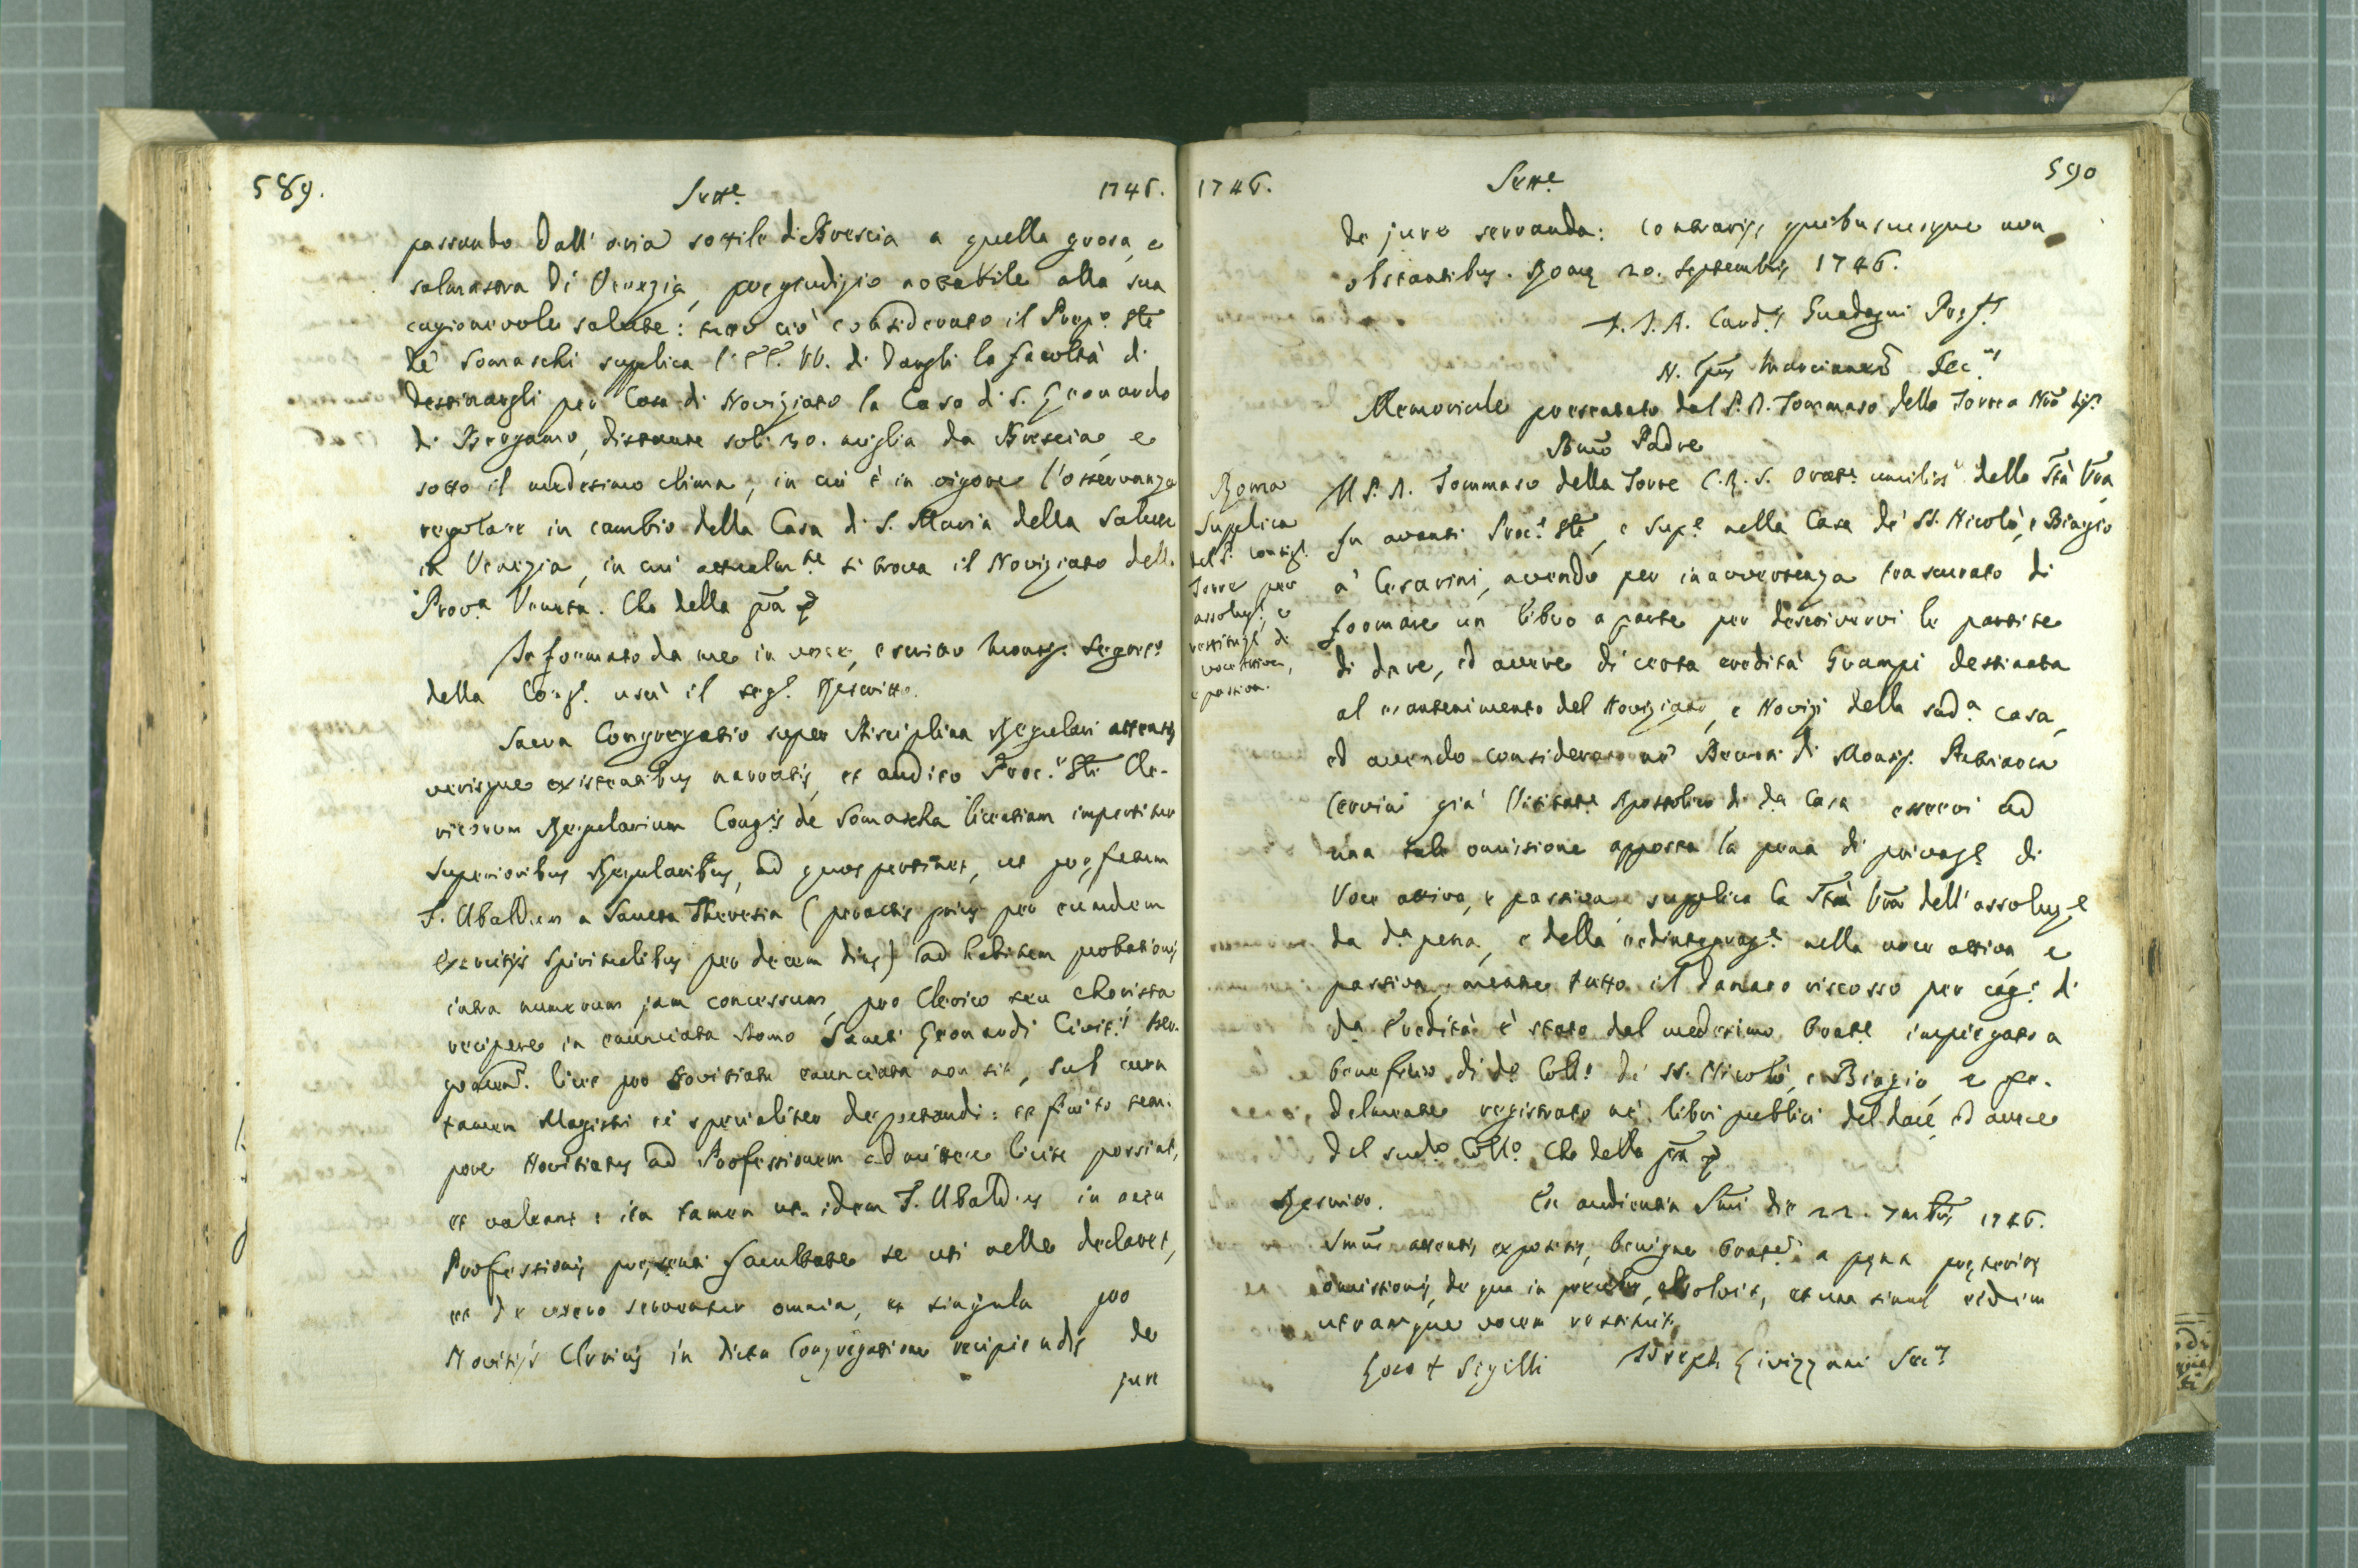 589. Sette 1746.
passando dall'aria sottile di Brescia a quella grosa, e
salmastra di Venezia, pregiudizio notabile alla sua
cagionevole salute: tutto ciò considerato il Proc.e Gñle
de' Somaschi supplica l'EE. VV. di dargli la facoltà di
destinargli per Casa di Noviziato la Casa di S. Leonardo
di Bergamo, distante soli 30. miglia da Brescia, e
sotto il medesimo clima, in cui è in vigore l'osservanza
regolare in cambio della Casa di S. Maria della Salute
in Venezia, in cui attualm.te si trova il Noviziato dell.
Prov.a Veneta. Che della gr̃a
Informato da me in voce, e scritto Monsig. Segret.o
della Cong.e uscì il seg.e Rescritto.
Sacra Congregatio super Disciplina Regulari attentis
verisque existentibus narratis, et audito Proc.ri Gñli Cle-
ricorum Regularium Cong.is de Somascha licentiam impertitur
Superioribus Regularibus, ad quos pertinet, ut præfatum
F. Ubaldum a Sancta Theresia (peractis prius per eumdem
exercitijs Spiritualibus per decem dies) ad habitum probationis
intra numerum jam concessum, pro Clerico seu Chorista
recipere in enunciata Domo Sancti Leonardi Civit.is Ber-
gomen. licet pro Novitiatu enunciata non sit, sub cura
tamen Magistri ei specialiter deputandi: et finito tem-
pore Novitiatus ad Professionem admittere licite possint,
et valeant: ita tamen ut idem F. Ubaldus in actu
Professionis præsenti facultate se uti velle declaret,
et de cetero serventur omnia, et singula pro
Novitijs Clericis in dicta Congregatione recipiendis de
jure
1746. Sette 590
de jure servanda: contrarijs quibuscumque non
obstantibus. Romæ 20. Septembris 1746.
F. J. A. Card.lis Guadagni Præf.s
N. Secr.us
Memoriale presentato dal P. D. Tommaso della Torre a Nr̃o Sig.e
Bmõ Padre
Roma
Supplica
del P. Consigl.
Torre per
assoluz.e, e
restituz.e di
voce attiva,
e passiva.
Il P. D. Tommaso della Torre C. R. S. Orat.e umiliss.o della Stà Vr̃a
fu avanti Proc.e Gñle, e Sup.e nella Casa de' SS. Nicolò, e Biagio
a' Cesarini, avendo per inavvertenza trascurato di
formare un libro a parte per descrivervi le partite
di dare, ed avere di certa eredità Grampi destinata
al mantenimento del Noviziato, e Novizi della sud.a Casa,
ed avendo considerato ne' Decreti di Monsig.
Cervini già Visitat.e Apostolico di d.a Casa esservi ad
una tale omissione apposta la pena di privaz.e di
Voce attiva, e passiva, supplica la Stà Vr̃a dell'assoluz.e
da d.a pena, e della redintegraz.e nella voce attiva, e
passiva, mentre tutto il danaro riscosso per cag.e di
d.a Eredità è stato dal medesimo Orat.e impiegato a
beneficio di d.o Coll.o de' SS. Nicolò, e Biagio, e fe-
delmente registrato ne' libri pubblici del dare, ed avere
del sud.o Coll.o Che della gr̃a
Rescritto. Ex audientia Smĩ die 22. 7mbris 1746.
Smũs attentis expositis, benigne Orat.em a pœna præteritæ
omissionis, de qua in precibus, absolvit, et una simul eidem
utramque vocem restituit.
Loco + Sigilli Joseph Livizzani Secr.s